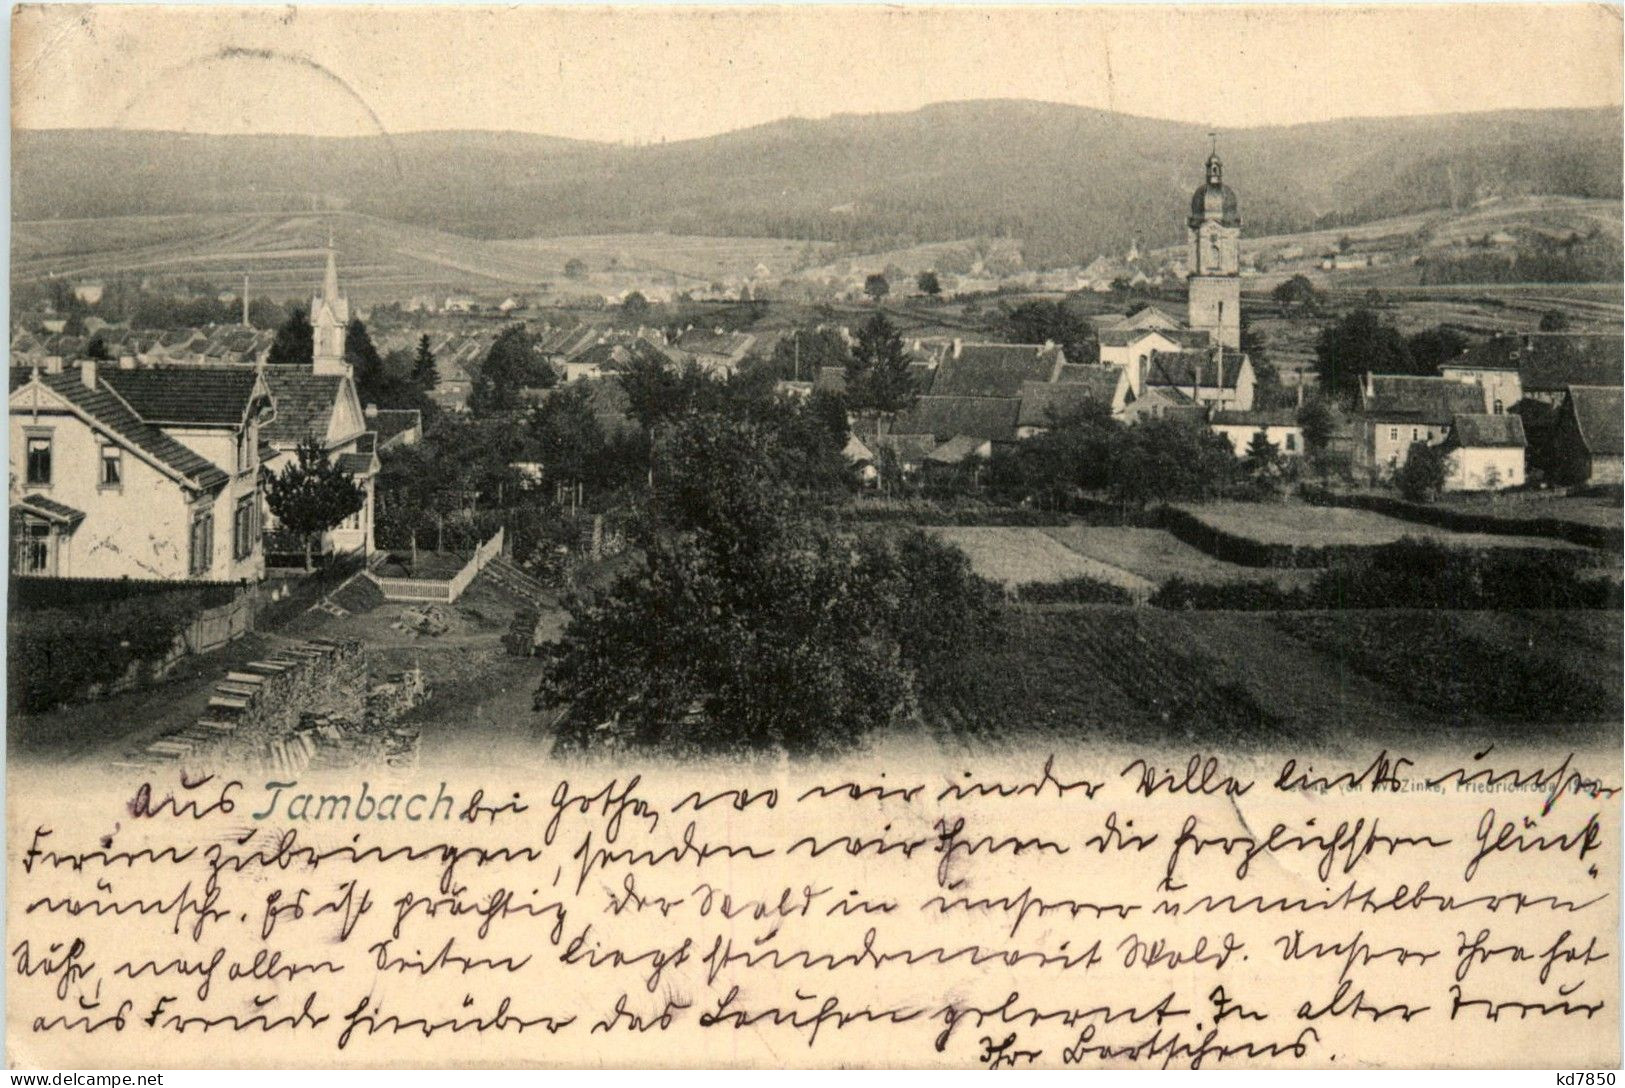 Aus Tambach bei Gotha, wo wir in der Villa links unsere
Zinke, Friedrichroda
Ferien zubringen, senden wir Ihnen die herzlichsten Glück
wünsche. Es ist prächtig, der Wald in unserer unmittelbaren
Nähe, nach allen Seiten liegt stundenweit Wald. Unsere Thea hat
aus Freude hierüber das Laufen gelernt. In alter Treue
Ihre Bartschens.
kd7850